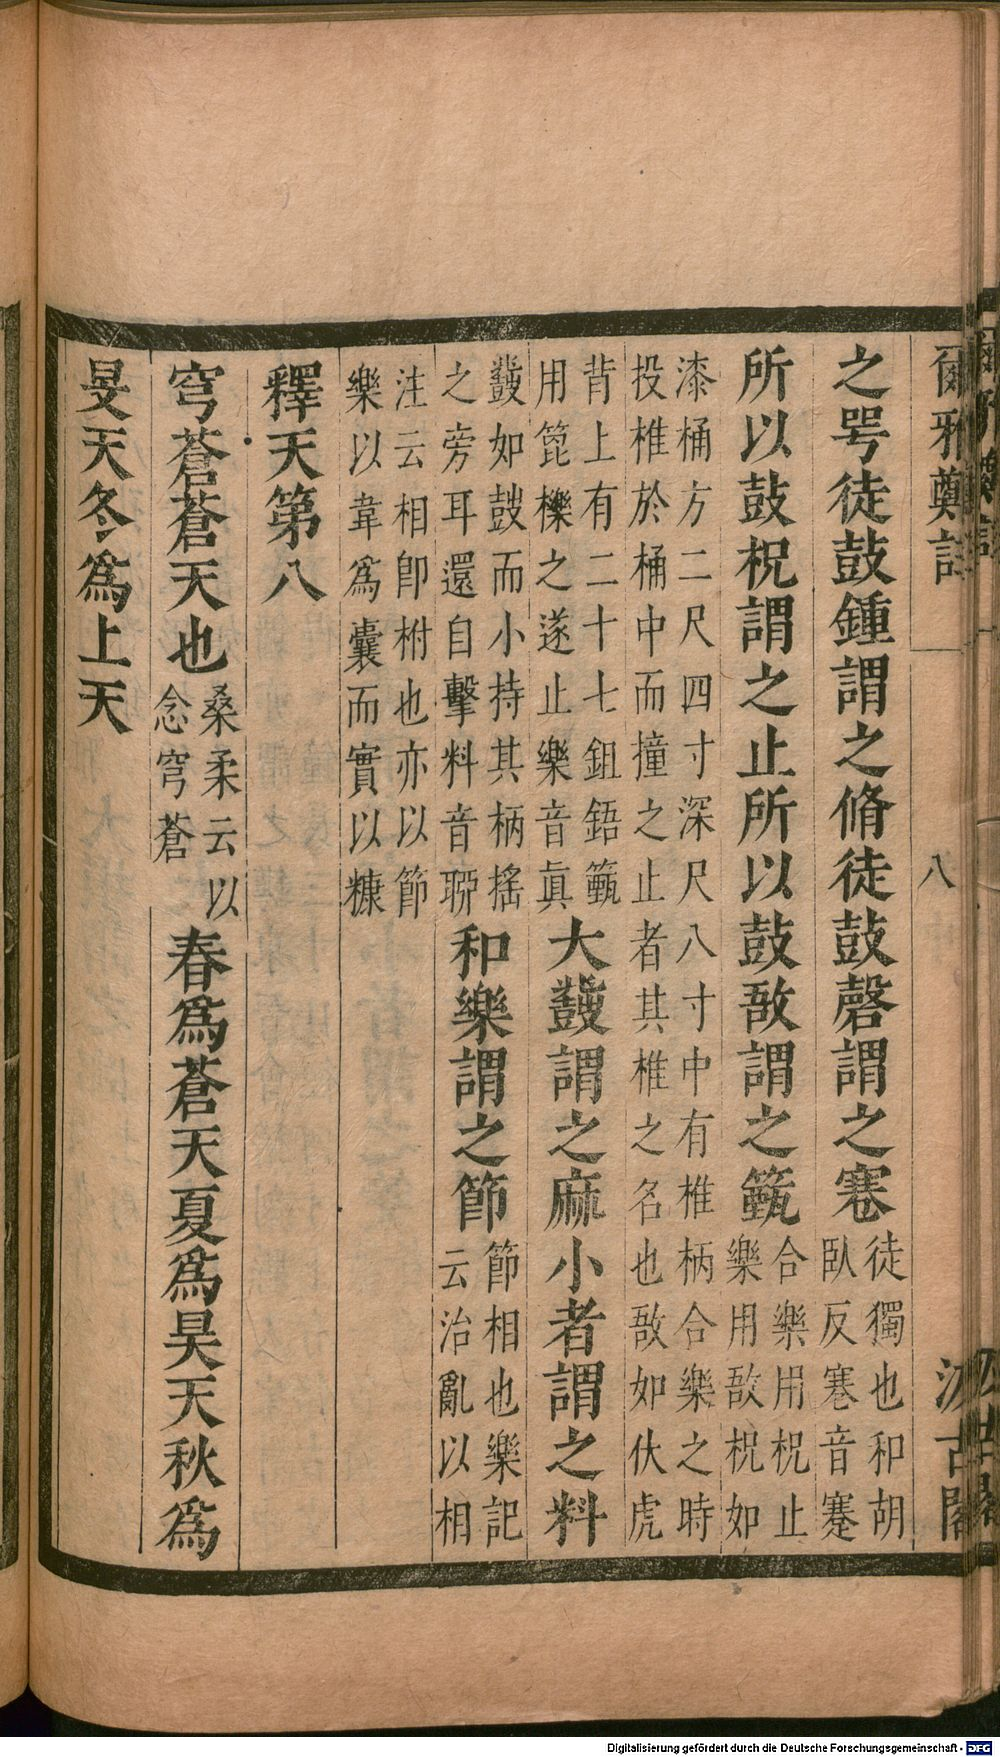 爾雅奠註
八
汲古閣
之咢徒鼓鍾謂之脩徒鼓磬謂之寋徒獨也和胡臥反寋音蹇
所以鼓柷謂之止所以鼓敔謂之籈合樂用柷止樂用敔柷如
漆桶方二尺四寸深尺八寸中有椎柄合樂之時
投椎於桶中而撞之止者其椎之名也敔如伏虎
背上有二十七鉏鋙籈
用箆櫟之遂止樂音眞
大鼗謂之麻小者謂之料
鼗如鼓而小持其柄搖
之旁耳還自擊料音聊
和樂謂之節節相也樂記云治亂以相
注云相卽柎也亦以節
樂以韋爲囊而實以糠
釋天第八
穹蒼蒼天也桑柔云以念穹蒼春爲蒼天夏爲昊天秋爲
旻天冬爲上天
Digitalisierung gefördert durch die Deutsche Forschungsgemeinschaft - DFG